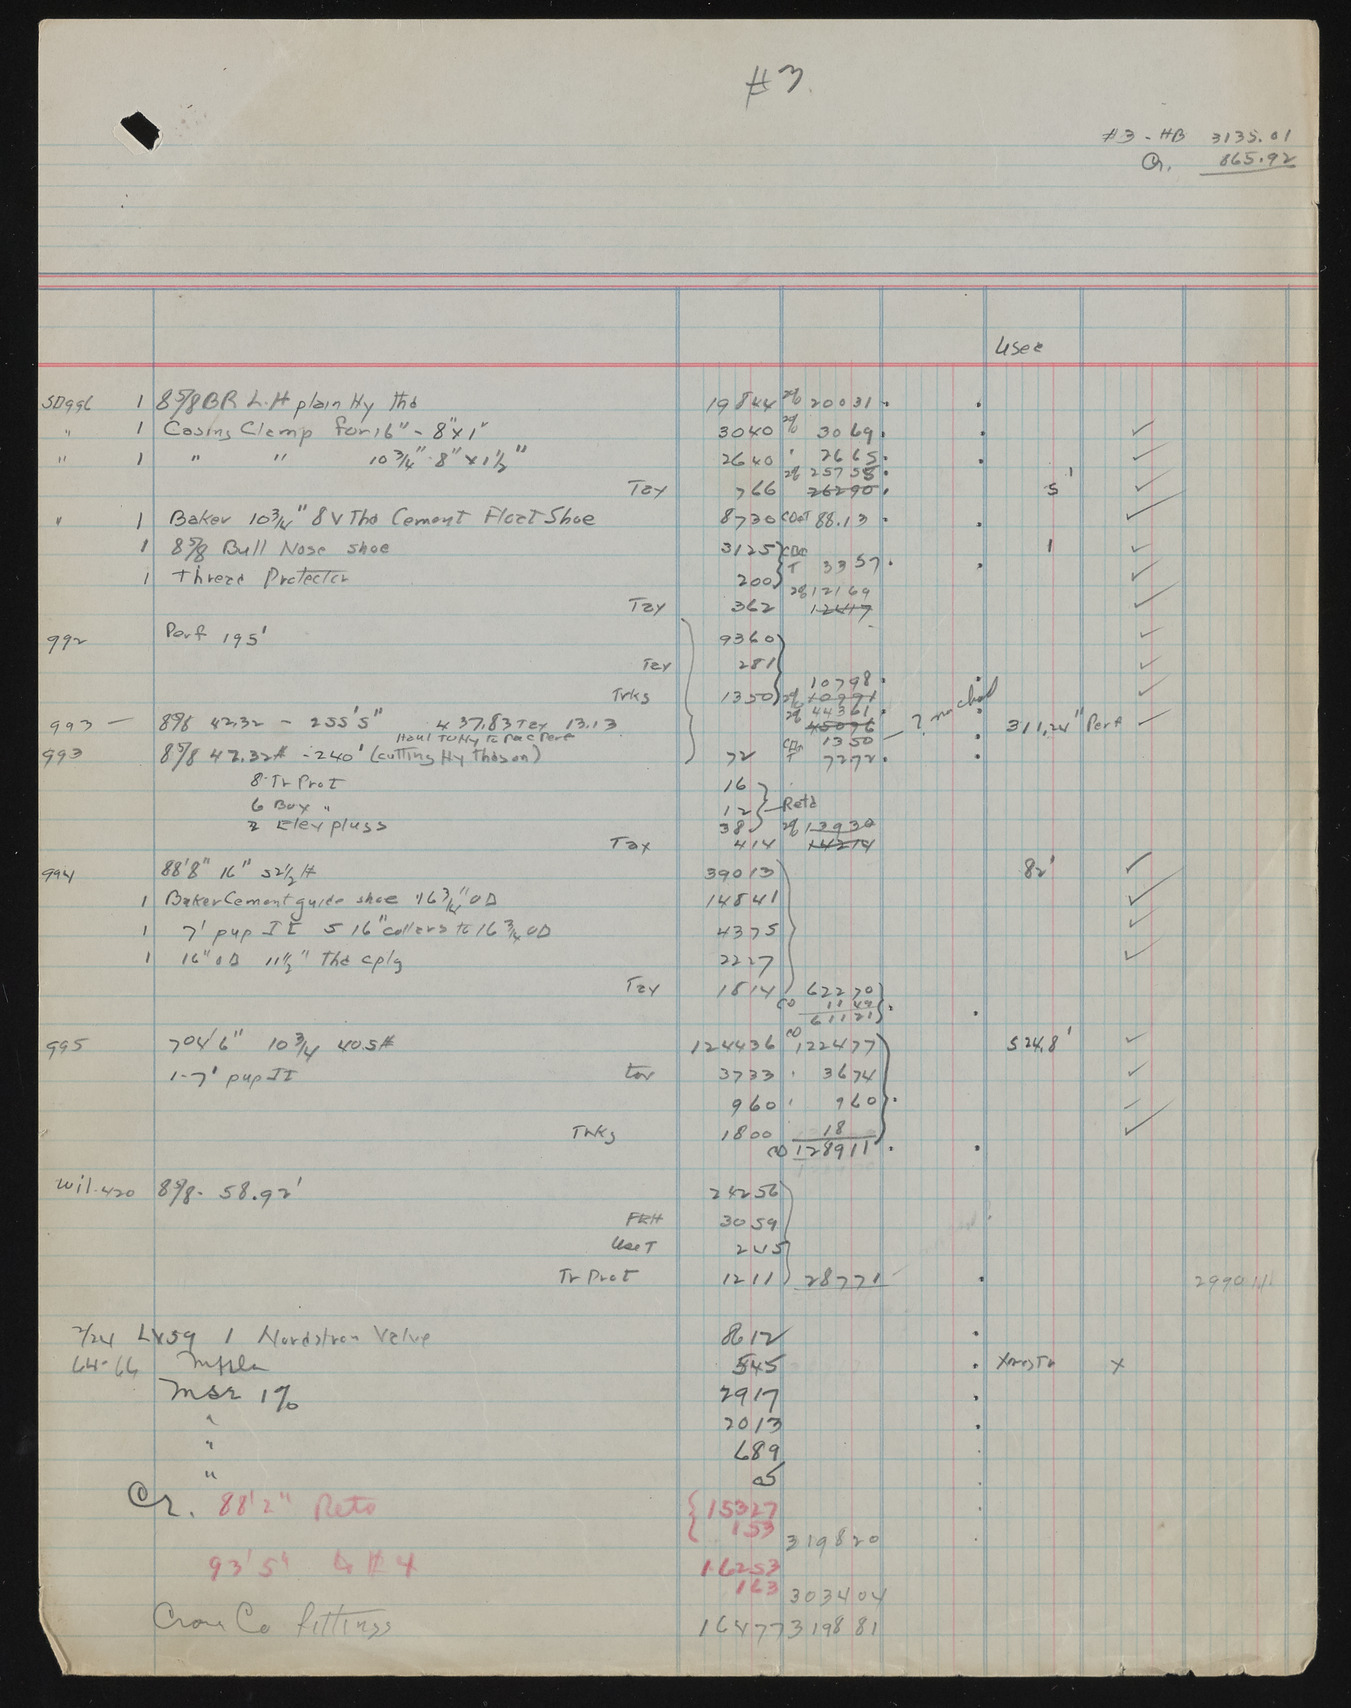 #3
#3 - HB 3135.01
Cr. 865.92
Used
SD996 1 8 5/8 BR L.H plain Hy Thd 19844 2% 20031
" 1 Casing Clamp for 16" - 8"x1" 3040 2% 3069
" 1 " " 10 3/4" - 8" x 1 1/2" 2640 " 2665
2% 25755
Tax 766 26290 5'
" 1 Baker 10 3/4" 8 V Thd Cement Float Shoe 8730 CD&T 88.13
1 8 5/8 Bull Nose shoe 3125 CD& 1
T 3357
1 Thread Protector 200
2% 12169
Tax 362 12417
992 Perf 195' 9360
Tax 281
10798
Trks 1350 2% 10991
2% 44361
993 - 8 5/8 42.32 - 255'5" 437.83 Tax 13.13 45096 311.24" Perf
Haul to Hy to Pac Perf 1350 ? no chod
993 8 5/8 42.32# - 240' (cutting Hy Thds on) 72 T 7272
8 Tr Prot 16
6 Box " 12 Retd
2 Elev plugs 38 2% 13930
Tax 414 14214
994 88'8" 16" 52 1/2 # 39013 82'
1 Baker Cement guide shoe 16 3/4" OD 14841
1 7' pup JT 5 16" collars to 16 3/4 OD 4375
1 16" OD 11 1/2" Thd cplg 2227
Tax 1814 62270
CD 1149
61121
995 704'6" 10 3/4 40.5# 124436 CD 122477 524.8'
1-7' pup JT tax 3733 " 3674
960 " 960
Trks 1800 18
CD 128911
Wil. 420 8 5/8 - 58.92' 24256
FRH 3059
Use T 245
Tr Prot 1211 28771 2990 11
2/24 LV59 1 Nordstrom Valve 8612
64-66 545 x
Mse 1% 2917
" 2013
" 689
" 05
Cr. 88'2" Retd 15327
153
319820
93'5" to #4 16253
163
303404
Crane Co fittings 16477 319881